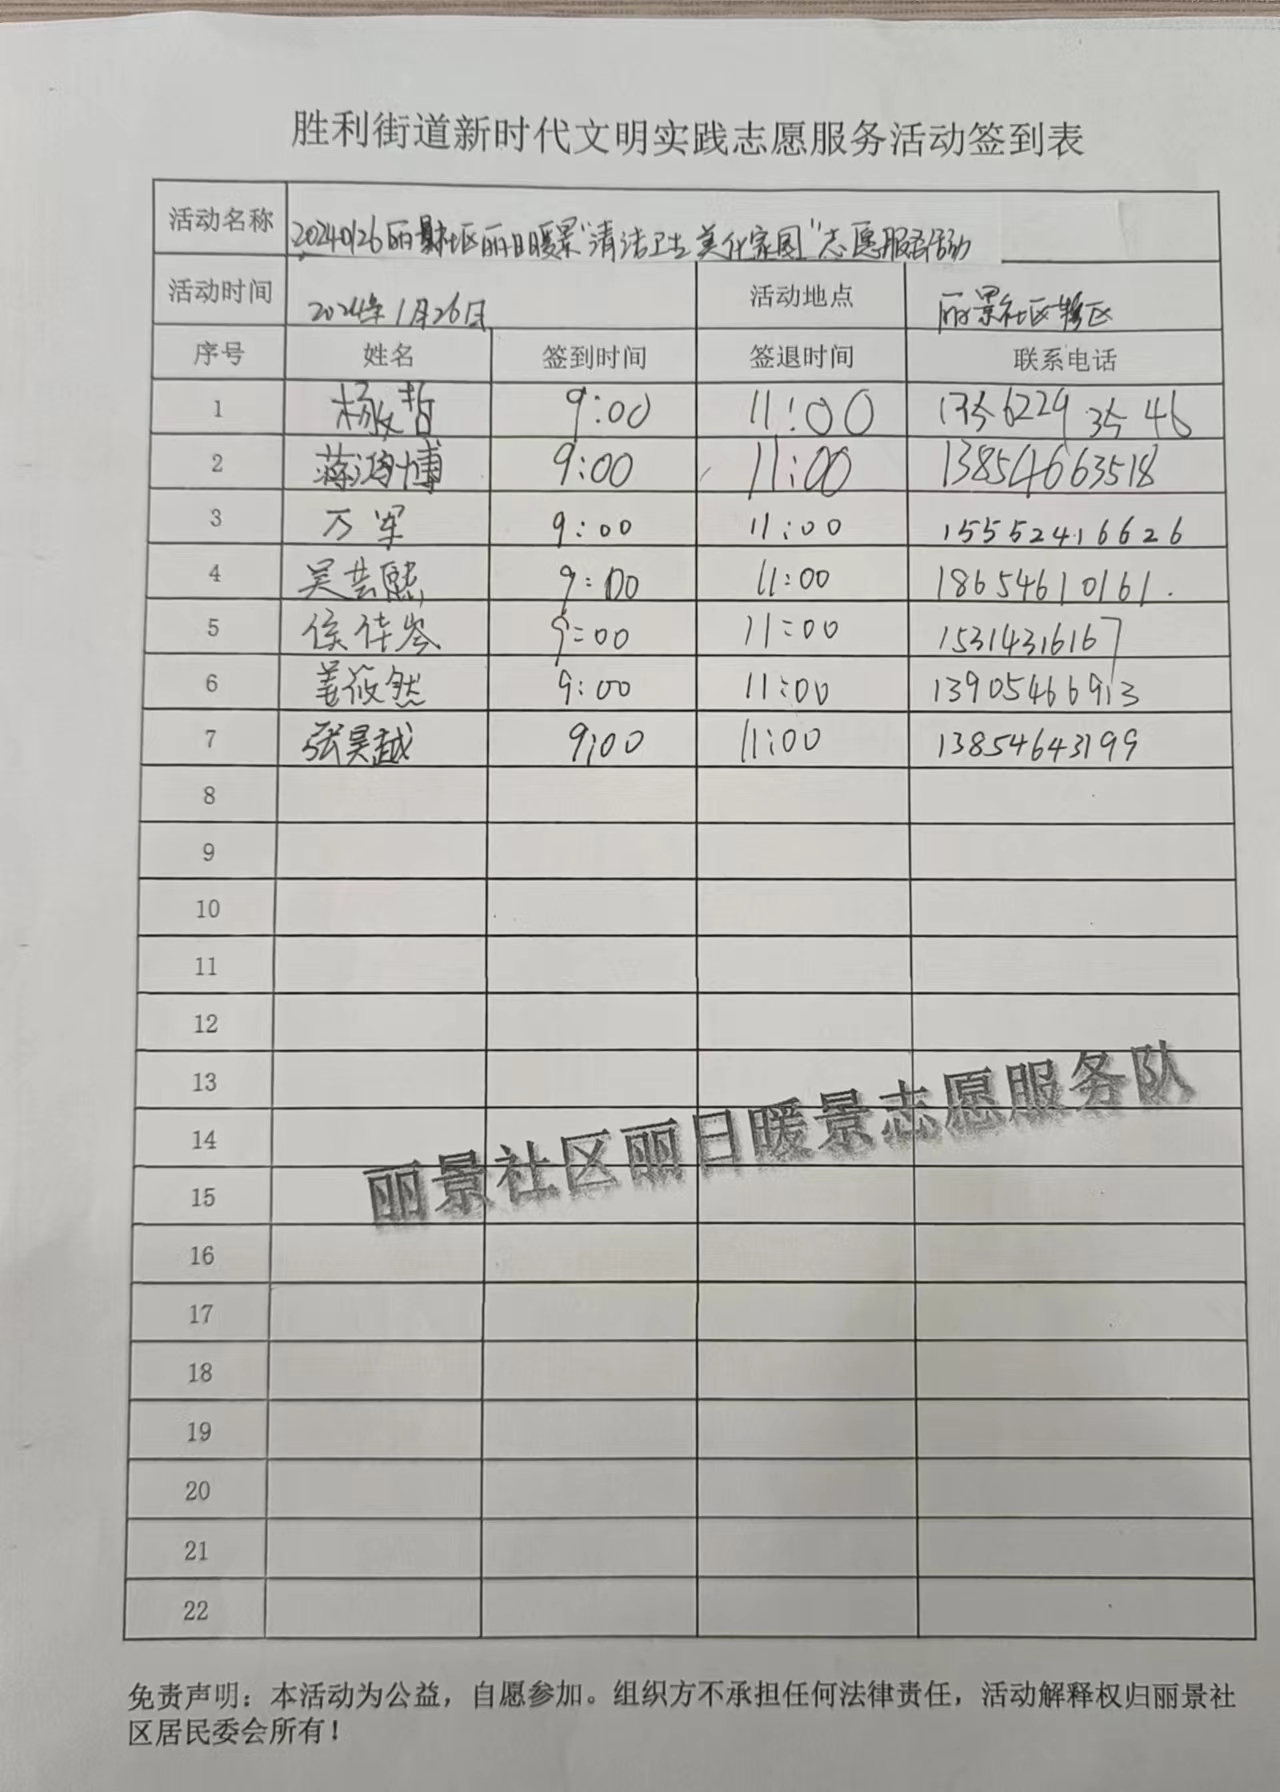 胜利街道新时代文明实践志愿服务活动签到表
活动名称 20240126丽景社区丽日暖景“清洁卫生 美化家园”志愿服务活动
活动时间 2024年1月26日 活动地点 丽景社区辖区
序号 姓名 签到时间 签退时间 联系电话
1 杨哲 9:00 11:00 13562293546
2 蒋鸿博 9:00 11:00 13854663518
3 万军 9:00 11:00 15552416626
4 吴芸熙 9:00 11:00 18654610161.
5 侯佳岑 9:00 11:00 15314316167
6 姜筱然 9:00 11:00 13905466913
7 张昊越 9:00 11:00 13854643199
8
9
10
11
12
13
14
丽景社区丽日暖景志愿服务队
15
16
17
18
19
20
21
22
免责声明：本活动为公益，自愿参加。组织方不承担任何法律责任，活动解释权归丽景社
区居民委会所有！